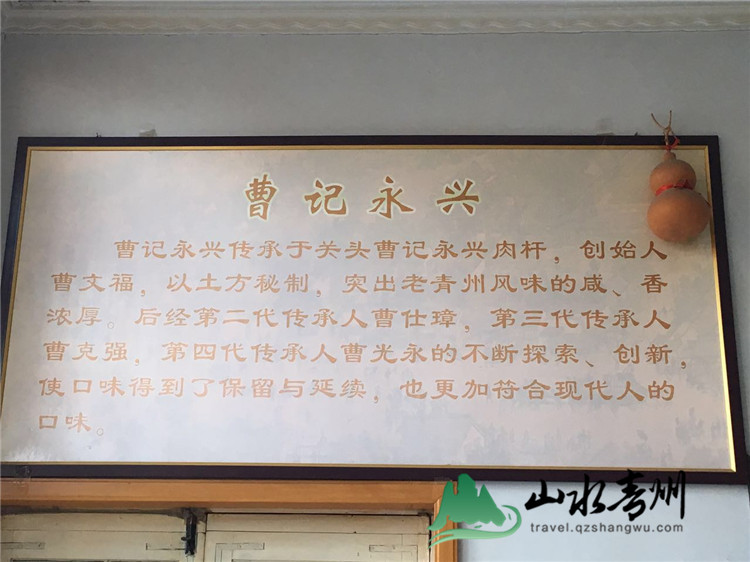 曹记永兴
曹记永兴传承于关头曹记永兴肉杆，创始人
曹文福，以土方秘制，突出老青州风味的咸、香
浓厚。后经第二代传承人曹仕璋，第三代传承人
曹克强，第四代传承人曹光永的不断探索、创新，
使口味得到了保留与延续，也更加符合现代人的
口味。
山水青州
travel.qzshangwu.com